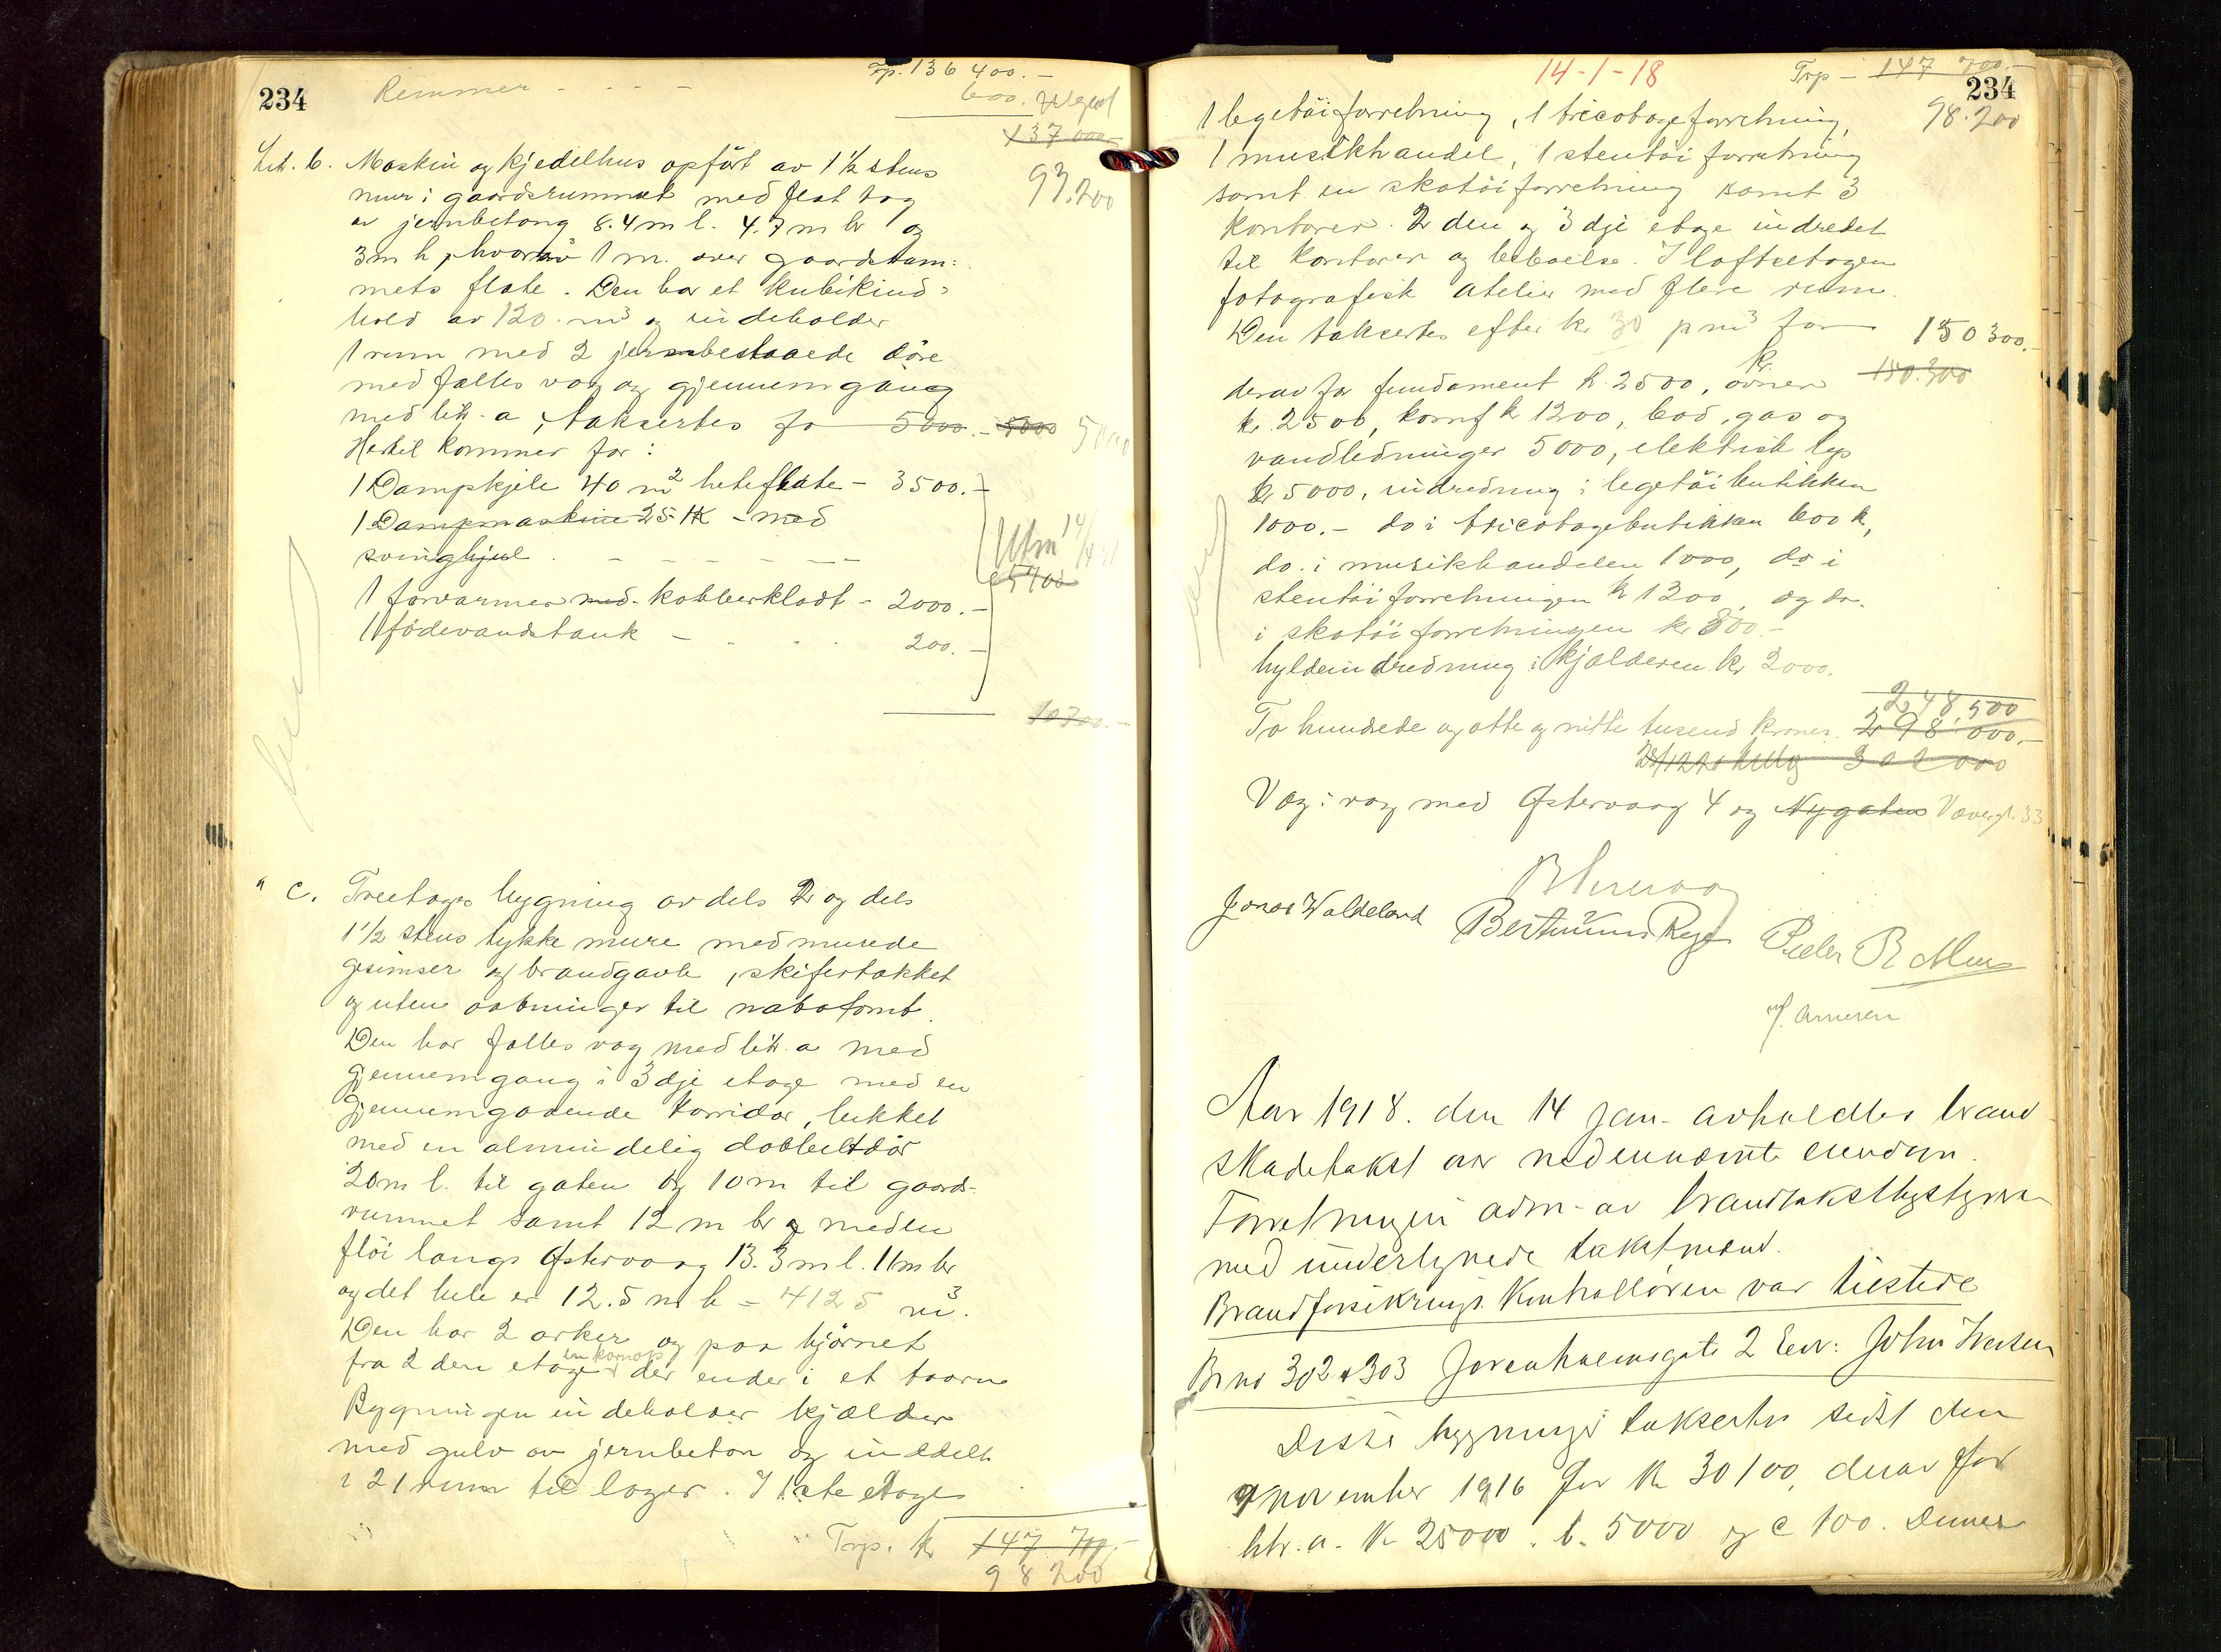 234
Remmer
Trp. 136 400.-
600.
137 000
93.200
Lit. b. Maskin og kjedelhus opført av 1 1/2 stens
mur i gaardsrummet med flat tag
av jernbetong 8.4 m l. 4.7 m br og
3 m h, hvorav 1 m. over gaardsrum:
mets flate. Den har et kubikind=
hold av 120 m3 og indeholder
1 rum med 2 jernbeslaaede döre
med fælles væg og gjennemgang
med litr. a, takseres for 5000.- 5000 5000
Hertil kommer for:
1 Dampkjele 40 m2 heteflate - 3500.-
1 Dampmaskine 25 HK - med
svinghjul
Utm 14/4
5700
1 forvarmer med kobberkladt - 2000.-
1 födevandstank - 200.-
10700.-
" c. Treetages bygning av dels 2 og dels
1 1/2 stens tykke mure med murede
gesimser og brandgavle, skifertækket
og uten aabninger til nabotomt.
Den har fælles væg med litr. a med
gjennemgang i 3dje etage med en
gjennemgaaende korridor, lukket
med en almindelig dobbeltdör
20 m l. til gaten og 10 m til gaards-
rummet samt 12 m br og med en
flöi langs Østervaag 13.3 m l. 11 m br
og det hele er 12.5 m h = 4125 m3.
Den har 2 arker og paa hjörnet
fra 2den etage en karnap der ender i et taarn
Bygningen indeholder kjælder
med gulv av jernbeton og inddelt
i 21 rum til lager. I 1ste etage
Trp. kr 147 700.-
98 200
14-1-18
Trp - 147 700.-
234
98.200
1 legetöiforretning, 1 tricotageforretning,
1 musikhandel, 1 stentöiforretning
samt en skotöiforretning samt 3
kontorer. 2den og 3dje etage indredet
til kontorer og beboelse. I loftsetagen
fotografisk atelier med flere rum.
Den takseres efter kr 30 pr m3 for 150 300.-
kr. 150.300
derav for fundament kr. 2500, ovner
kr. 2500, komf kr 1200, bad, gas og
vandledninger 5000, elektrisk lys
kr 5000, indredning i legetöibutikken
1000.- do i tricotagebutikken 600 kr,
do. i musikhandelen 1000, do i
stentöiforretningen kr 1300, og do.
i skotöiforretningen kr 800.-
hyldeindredning i kjælderen kr 2000.
248.500
To hundrede og otte og nitti tusend kroner. 298.000.-
302000
Væg i væg med Østervaag 4 og Nygaten Vævergt. 33
Jonas Waldeland
Peder R
J. Arnesen
Aar 1918. den 14 Jan. avholdtes brand
skadetakst over nedennævnte eiendom.
Forretningen adm. av brandtakstbestyrer
med undertegnede takstmænd.
Brandforsikrings Kontrolløren var tilstede
Br no 302 & 303 Jorenholmsgate 2 Eier: John Iversen
Disse bygninger takseres sidst den
9 november 1916 for kr 30100, derav for
litr. a. kr 25000. b. 5000 og c 100. Denne